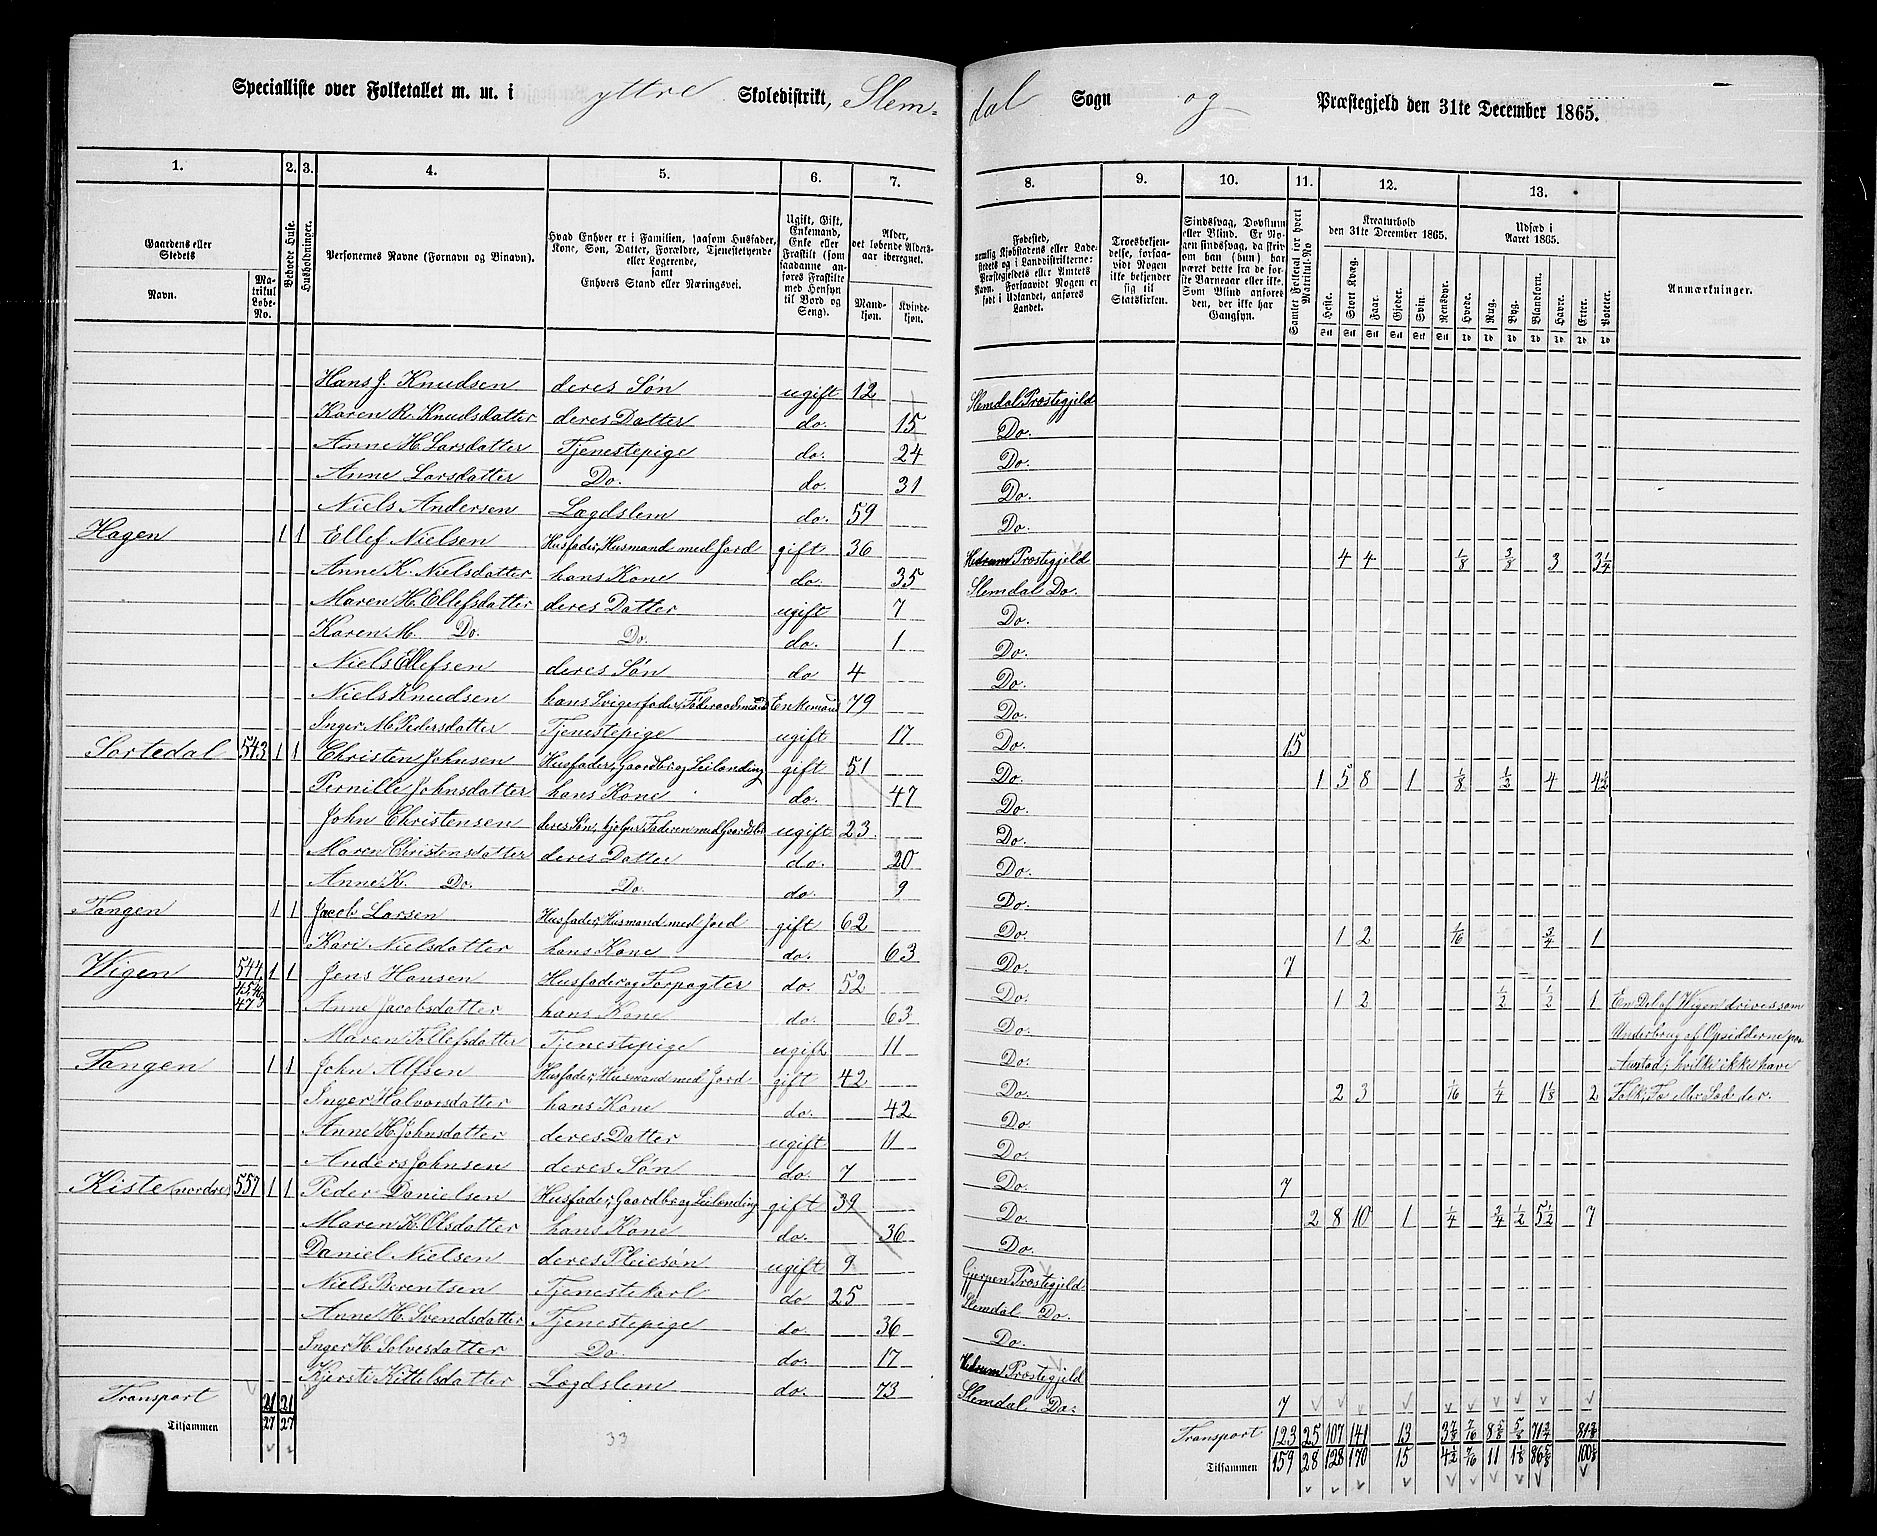 Specialliste over Folketallet m. m. i yttre Skoledistrikt, Slem-
dal Sogn og Præstegjeld den 31te December 1865.
1. 2. 3. 4. 5. 6. 7. 8. 9. 10. 11. 12. 13.
Gaardens eller Stedets Navn. Matrikul Løbe-No. Beboede Huse. Husholdninger. Personernes Navne (Fornavn og Binavn). Hvad Enhver er i Familien, saasom Husfader, Kone, Søn, Datter, Forældre, Tjenestetyende eller Logerende, samt Enhvers Stand eller Næringsvei. Ugift, Gift, Enkemand, Enke eller Fraskilt (som saadanne anføres Fraskilte med Hensyn til Bord og Seng). Alder, det løbende Aldersaar iberegnet. Mandkjøn. Kvindekjøn.
Fødested, nemlig Kjøbstadens eller Ladestedets og i Landdistrikterne Præstegjeldets eller Amtets Navn. Forsaavidt Nogen er født i Udlandet, anføres Landet. Troesbekjendelse, forsaavidt Nogen ikke bekjender sig til Statskirken. Sindssvag, Døvstum eller Blind. Er Nogen sindssvag, da skrives om han (hun) har været dette fra de første Barneaar eller ikke. Som Blind anføres den, der ikke har Gangsyn. Samlet Folketal for hvert Matrikul-No Kreaturhold den 31te December 1865. Heste. Stort Kvæg. Faar. Gjeder. Svin. Rensdyr. Udsæd i Aaret 1865. Hvede. Rug. Byg. Blandkorn. Havre. Erter. Poteter. Anmærkninger.
Hans J. Knudsen deres Søn ugift 12 Slemdal Præstegjeld
Karen R. Knudsdatter deres Datter do. 15 Do.
Anne H. Larsdatter Tjenestepige do. 24 Do.
Anne Larsdatter Do. do. 31 Do.
Niels Andersen Lægdslem do. 59 Do.
Hagen 1 1 Ellef Nielsen Husfader, Husmand med Jord gift 36 Hedrum Præstegjeld 4 4 1/8 3/8 3 3 1/4
Anne K. Nielsdatter hans Kone do. 35 Slemdal Do.
Maren H. Ellefsdatter deres Datter ugift 7 Do.
Karen M. Do. Do. do. 1 Do.
Niels Ellefsen deres Søn do 4 Do.
Niels Knudsen hans Svigerfader, Føderaadsmand Enkemand 79 Do.
Inger M. Pedersdatter Tjenestepige ugift 17 Do. 15
Sortedal 543 1 1 Christen Johnsen Husfader, Gaardbr. og Leilænding gift 51 Do. 1 5 8 1 1/8 1/2 4 4 1/2
Pernille Johnsdatter hans Kone do. 47 Do.
John Christensen deres Søn, hjelper Faderen med Gaardsbr ugift 23 Do.
Maren Christensdatter deres Datter do. 20 Do.
Anne K. Do. Do. do. 9 Do.
Tangen 1 1 Jacob Larsen Husfader, Husmand med Jord gift 62 Do. 1 2 1/16 3/4 1
Kari Nielsdatter hans Kone do. 63 Do. 7
Wigen 544, 45, 46, 47 1 1 Jens Hansen Husfader og Forpagter do. 52 Do. 1 2 1/2 1/2 1 En Del af Wigen drives som
Anne Jacobsdatter hans Kone do. 63 Do. Underbrug af Opsidderne paa
Maren Tollefsdatter Tjenestepige ugift 11 Do. hvilke ikke have
Tangen 1 1 John Alfsen Husfader, Husmand med Jord gift 42 Do. 2 3 1/16 1/4 1 1/8 2 Folk, Fæ der.
Inger Halvorsdatter hans Kone do. 42 Do.
Anne H. Johnsdatter deres Datter ugift 11 Do.
Anders Johnsen deres Søn do. 7 Do. 7
Kiste (nordre) 557 1 1 Peder Danielsen Husfader, Gaardbr. og Leilænding gift 39 Do. 2 8 10 1 1/4 3/4 1/2 5 1/2 7
Maren K. Olsdatter hans Kone do. 36 Do.
Daniel Nielsen deres Pleiesøn ugift 9 Gjerpen Præstegjeld
Niels Berentsen Tjenestekarl do 25 Slemdal Do.
Anne H. Svendsdatter Tjenestepige do. 36 Do.
Inger H. Solvesdatter Do. do. 17 Hedrum Præstegjeld
Kjersti Kittelsdatter Lægdslem do. 73 Slemdal Do. 7
Transport 21 21 Transport 123 25 107 141 13 3 7/8 7/16 8 5/8 5/8 71 3/4 81 3/8
Tilsammen 27 27 33 Tilsammen 159 28 128 170 15 4 1/2 7/16 11 1 1/8 86 5/8